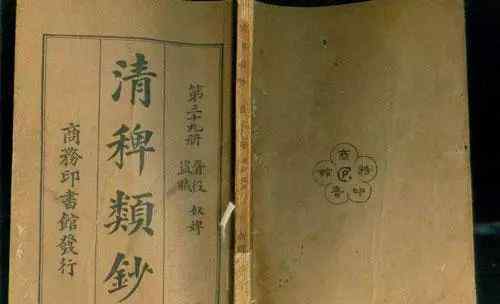 第三十九册
胥役 奴婢
盗賊
清稗類鈔
商務印書館發行
商務印書館